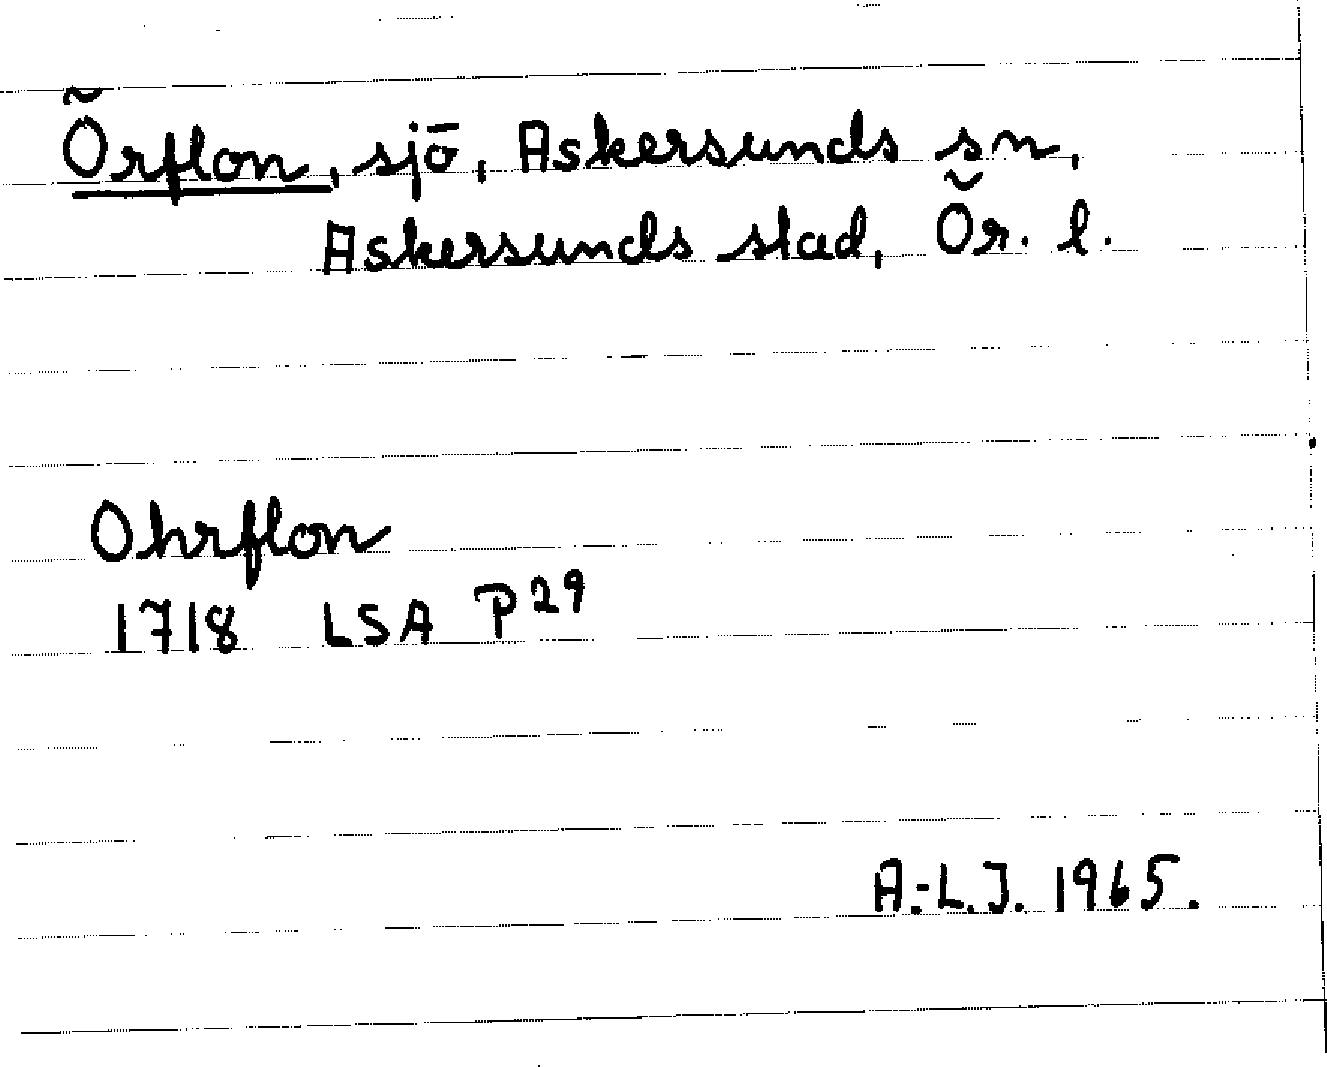 Örflon, sjö, Askersunds sn,
Askersunds stad, Ör. l.
Ohrflon
1718 LSA P 29
A.-L.J. 1965.